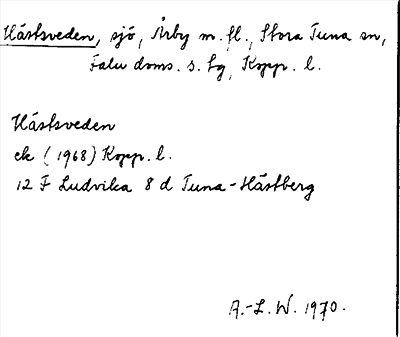 Hästsveden, sjö, Årby m.fl., Stora Tuna sn,
Falu doms. s. tg, Kopp. l.
Hästsveden
ek (1968) Kopp. l.
12 F Ludvika 8 d Tuna-Hästberg
A.-L. W. 1970.